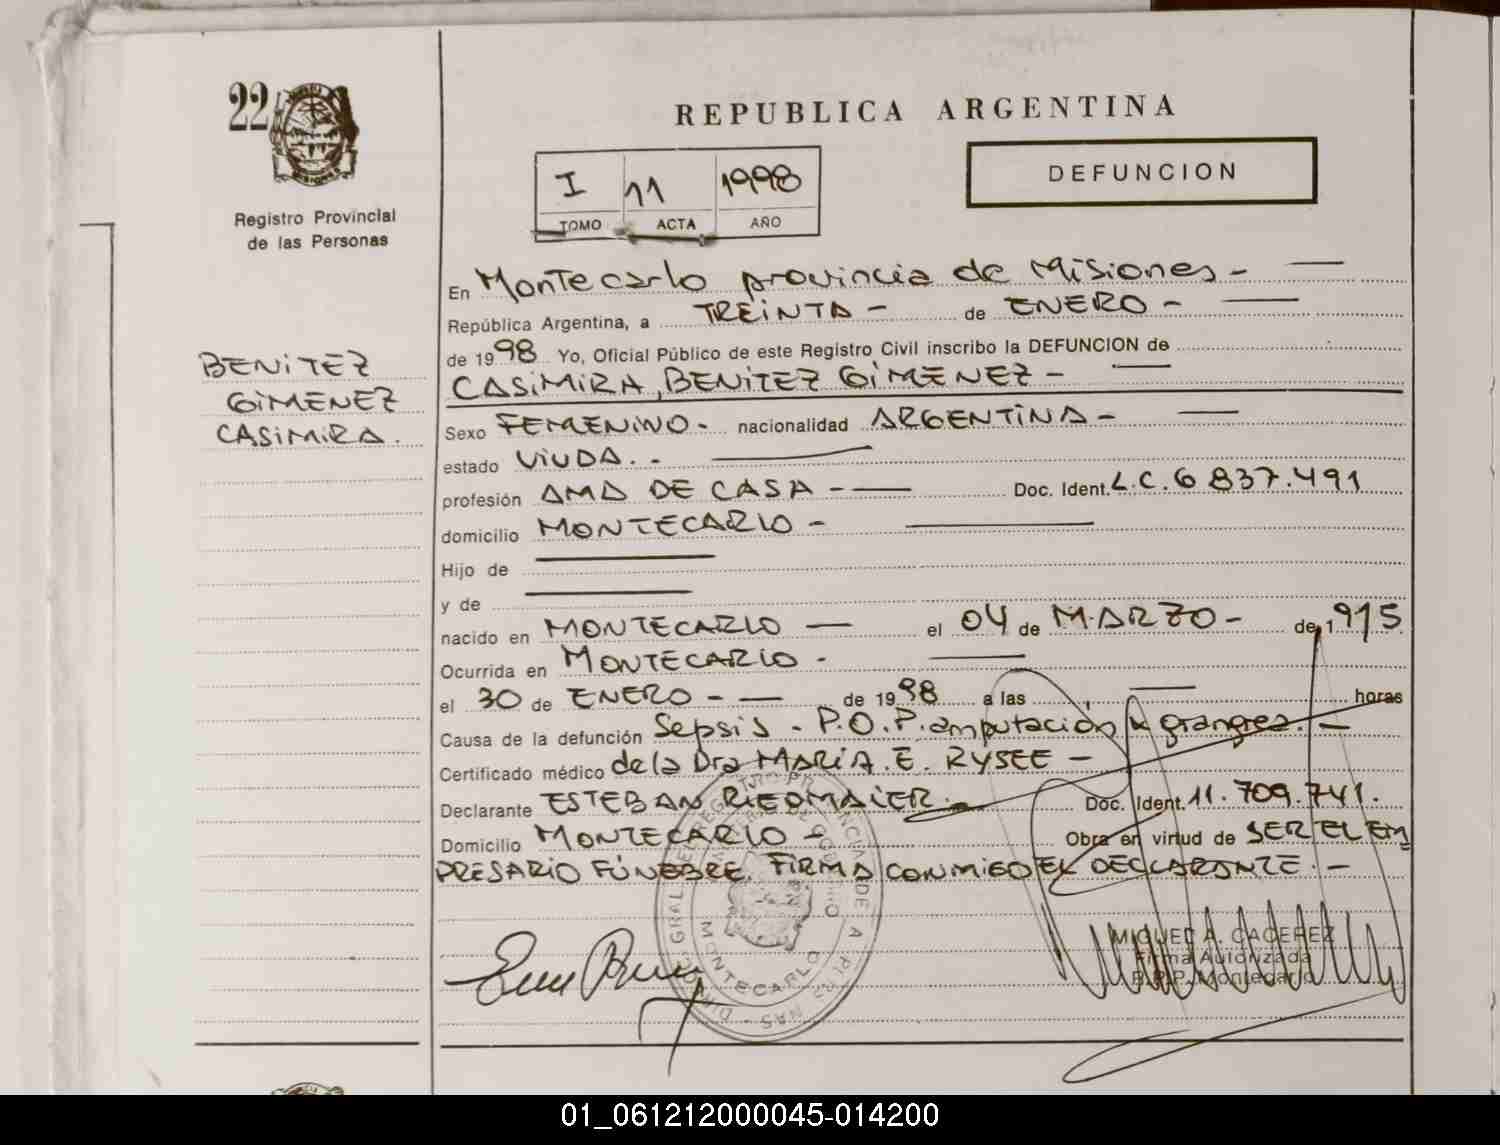 22
Registro Provincial
de las Personas
REPUBLICA ARGENTINA
I 11 1998
TOMO ACTA AÑO
DEFUNCION
BENITEZ
GIMENEZ
CASIMIRA.
En Montecarlo provincia de Misiones -
República Argentina, a TREINTA - de ENERO -
de 1998 Yo, Oficial Público de este Registro Civil inscribo la DEFUNCION de
CASIMIRA, BENITEZ GIMENEZ -
Sexo FEMENINO - nacionalidad ARGENTINA -
estado VIUDA. -
profesión AMA DE CASA - Doc. Ident. L.C. 6 837.491
domicilio MONTECARLO -
Hijo de
y de
nacido en MONTECARLO el 04 de MARZO - de 1915
Ocurrida en MONTECARLO -
el 30 de ENERO - de 1998 a las horas
Causa de la defunción Sepsis - P.O.P. amputación x grangrea. -
Certificado médico de la Dra MARIA. E. RYSEE -
Declarante ESTEBAN RIEDMAIER. - Doc. Ident. 11.709.741.
Domicilio MONTECARLO - Obra en virtud de SER EL EM
PRESARIO FÚNEBRE. FIRMA CONMIGO EL DECLARANTE. -
MONTECARLO
MIGUEL A. CACEREZ
Firma Autorizada
R.P.P. Montecarlo
01_061212000045-014200